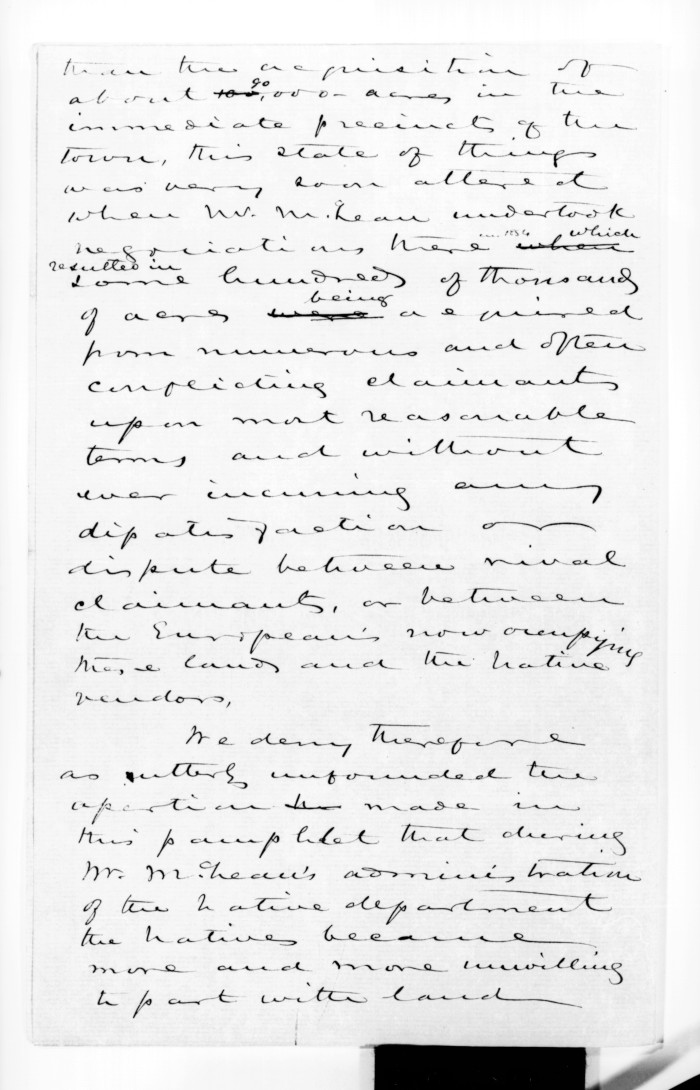 than the acquisition of
about 90,000 acres in the
immediate precincts of the
town, this state of things
was very soon altered
when Mr. McLean undertook
negociations there 1854 which
resulted in
some hundreds of thousands
of acres being acquired
from numerous and often
conflicting claimants
upon most reasonable
terms and without
ever incurring any
dissatisfaction or
dispute between rival
claimants, or between
the European's now occupying
these lands and the Native
vendors,
We deny therefore
as utterly unfounded the
assertion made in
this pamphlet that during
Mr. McLean's administration
of the Native department
the Natives became
more and more unwilling
to part with land